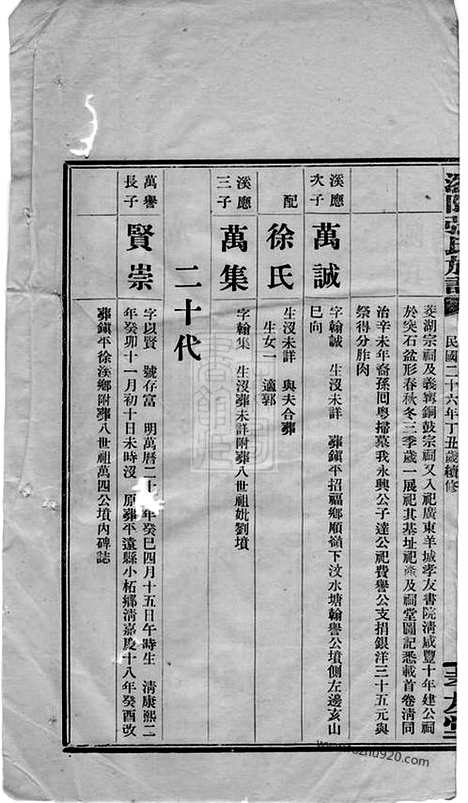 張氏族譜
民國二十六年丁丑歲續修
孝友堂
菱湖宗祠及義轉銅鼓宗祠又入祀廣東羊城孝友書院清咸豐十年建公祠
於突石盆形春秋冬三季歲一展祀其基址祀產及祠堂圖記悉載首卷清同
治辛未年裔孫回粵掃墓我永興公子達公祀費譽公支捐銀洋三十五元與
祭得分胙肉
溪應次子
萬誠
字翰誠 生沒未詳 葬鎮平招福鄉順嶺下汶水塘翰譽公墳側左邊亥山
巳向
配
徐氏
生沒未詳 與夫合葬
生女一 適郭
溪應三子
萬集
字翰集 生沒葬未詳附葬八世祖妣劉墳
二十代
萬譽長子
賢崇
字以賢 號存富 明萬曆二十一年癸巳四月十五日午時生 清康熙二
年癸卯十一月初十日未時沒 原葬平遠縣小柘鄉清嘉慶十八年癸酉改
葬鎮平徐溪鄉附葬八世祖萬四公墳內碑誌
www.jiazhu920.com